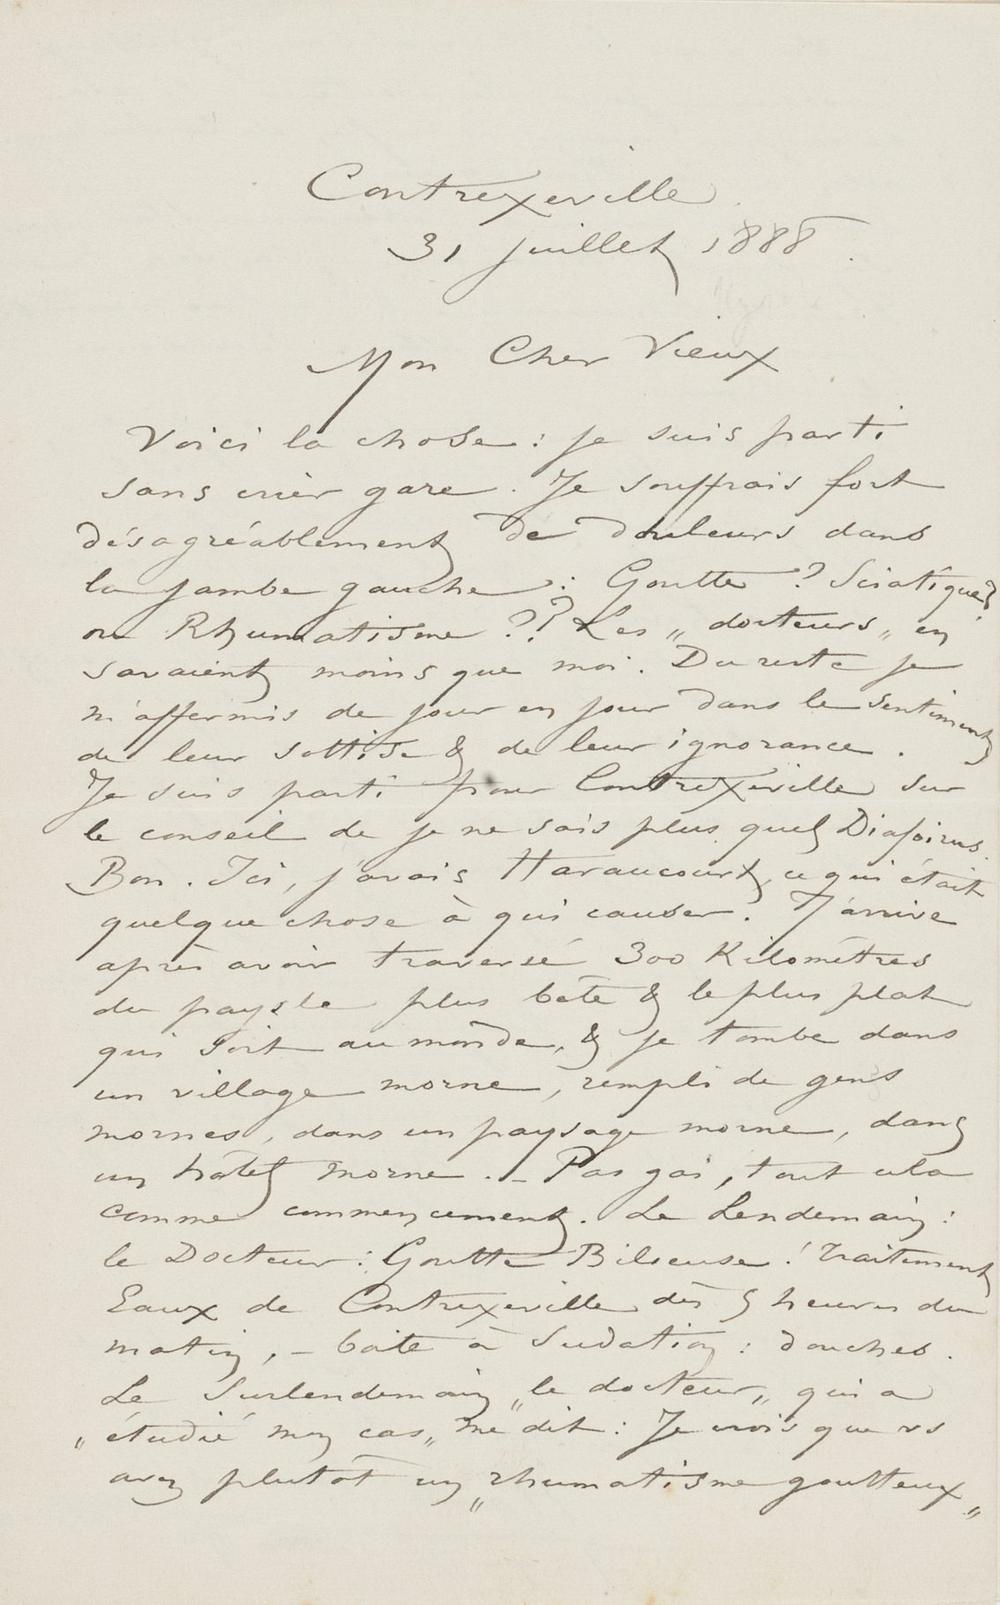 Contrexeville.
31 juillet 1888.
Mon Cher Vieux
Voici la chose : je suis parti
sans crier gare. Je souffrais fort
désagréablement de douleurs dans
la jambe gauche : Goutte ? Sciatique ?
ou Rhumatisme ?? Les „docteurs„ en
savaient moins que moi. Du reste je
m'affermis de jour en jour dans le sentiment
de leur sottise & de leur ignorance.
Je suis parti pour Contrexeville sur
le conseil de je ne sais plus quel Diafoirus.
Bon. Ici, j'avais Haraucourt, ce qui était
quelque chose à qui causer. J'arrive
après avoir traversé 300 Kilomètres
du pays le plus bête & le plus plat
qui soit au monde, & je tombe dans
un village morne, rempli de gens
mornes, dans un paysage morne, dans
un hôtel morne. – Pas gai, tout cela
comme commencement. Le Lendemain :
le Docteur : Goutte Bilieuse ! Traitement
Eaux de Contrexeville dès 5 heures du
matin, – boite à Sudation : douches.
Le Surlendemain „le docteur„ qui a
„étudié mon cas„ me dit : Je crois que vs
avez plutôt un „rhumatisme goutteux„